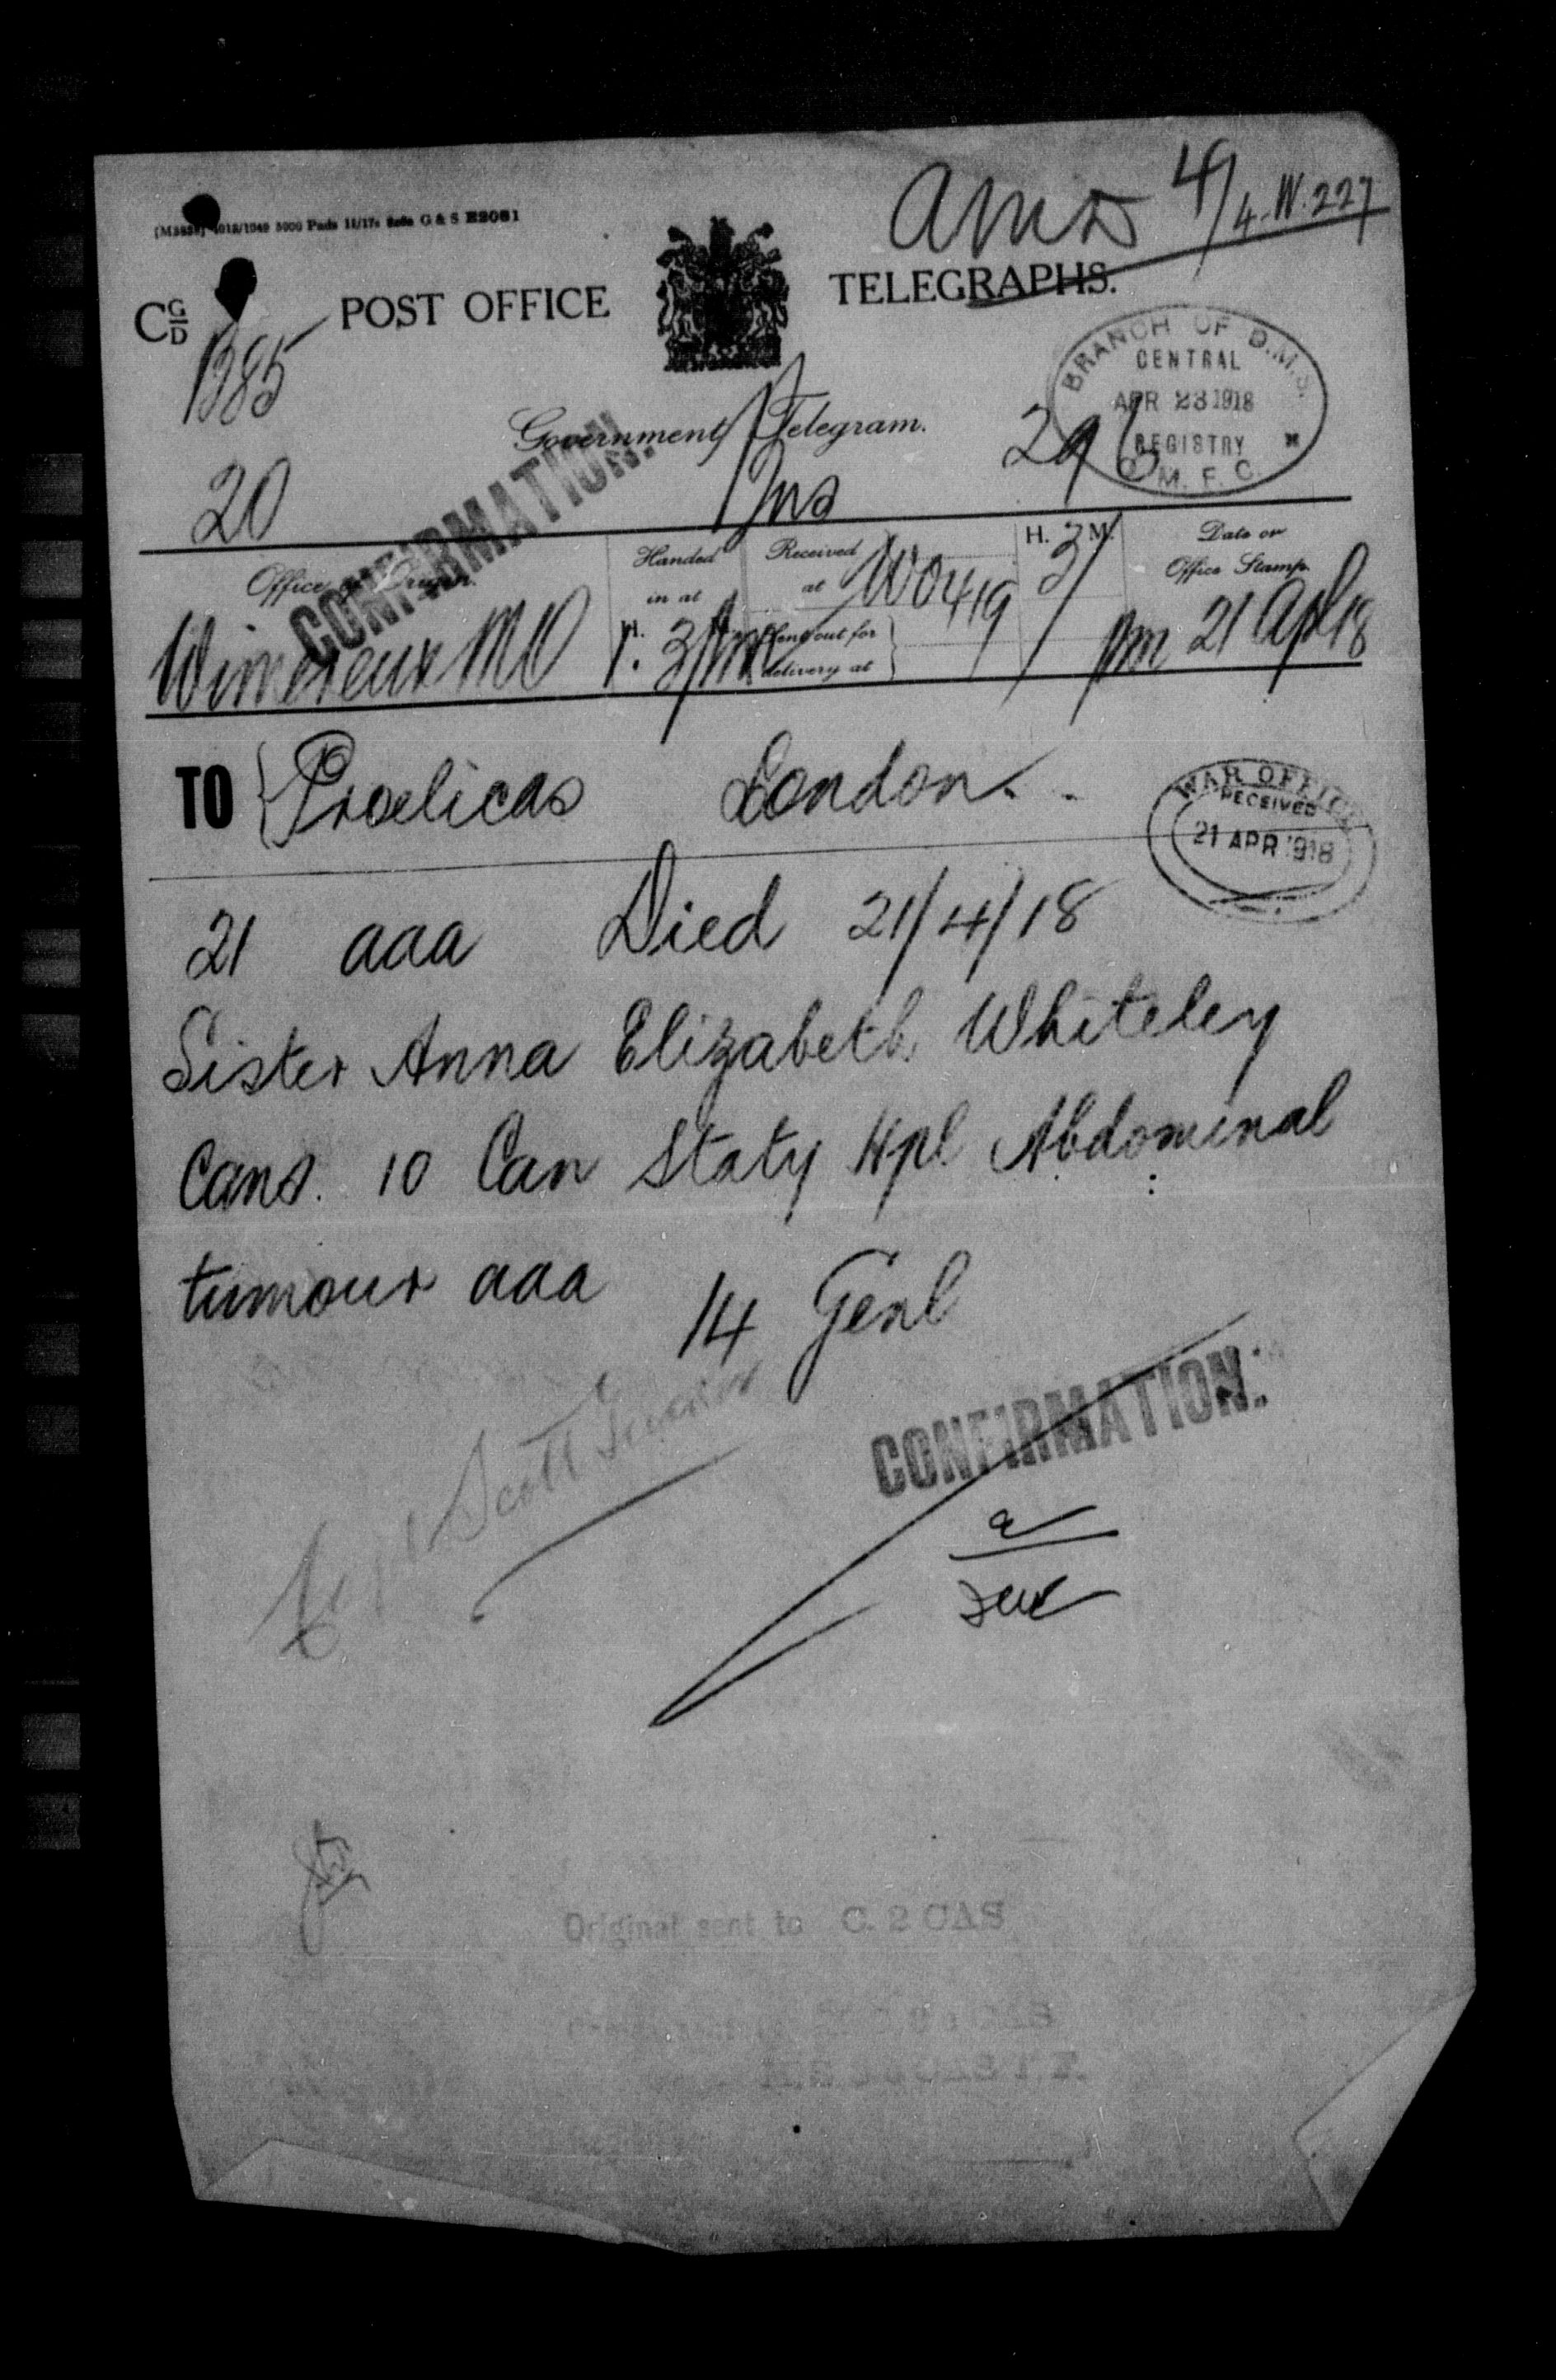 AMD 4/4-W.227
5000 Pads 11/17 G & S E2081
C G/D POST OFFICE TELEGRAPHS.
1385
BRANCH OF D.M.S.
CENTRAL
APR 23 1918
REGISTRY
O.M.F.C.
Government Telegram.
CONFIRMATION.
20
296
Office of Origin. Handed in at Received at H. M. Date or Office Stamp.
Sent out for delivery at
Wimereux MO WO419 pm 21 Apl 18
TO Proelicas London.
WAR OFFICE
RECEIVED
21 APR 1918
21 aaa Died 21/4/18
Sister Anna Elizabeth Whiteley
Cans. 10 Can Staty Hpl Abdominal
tumour aaa 14 Genl
Scott
CONFIRMATION.
Original sent to C. 2 CAS